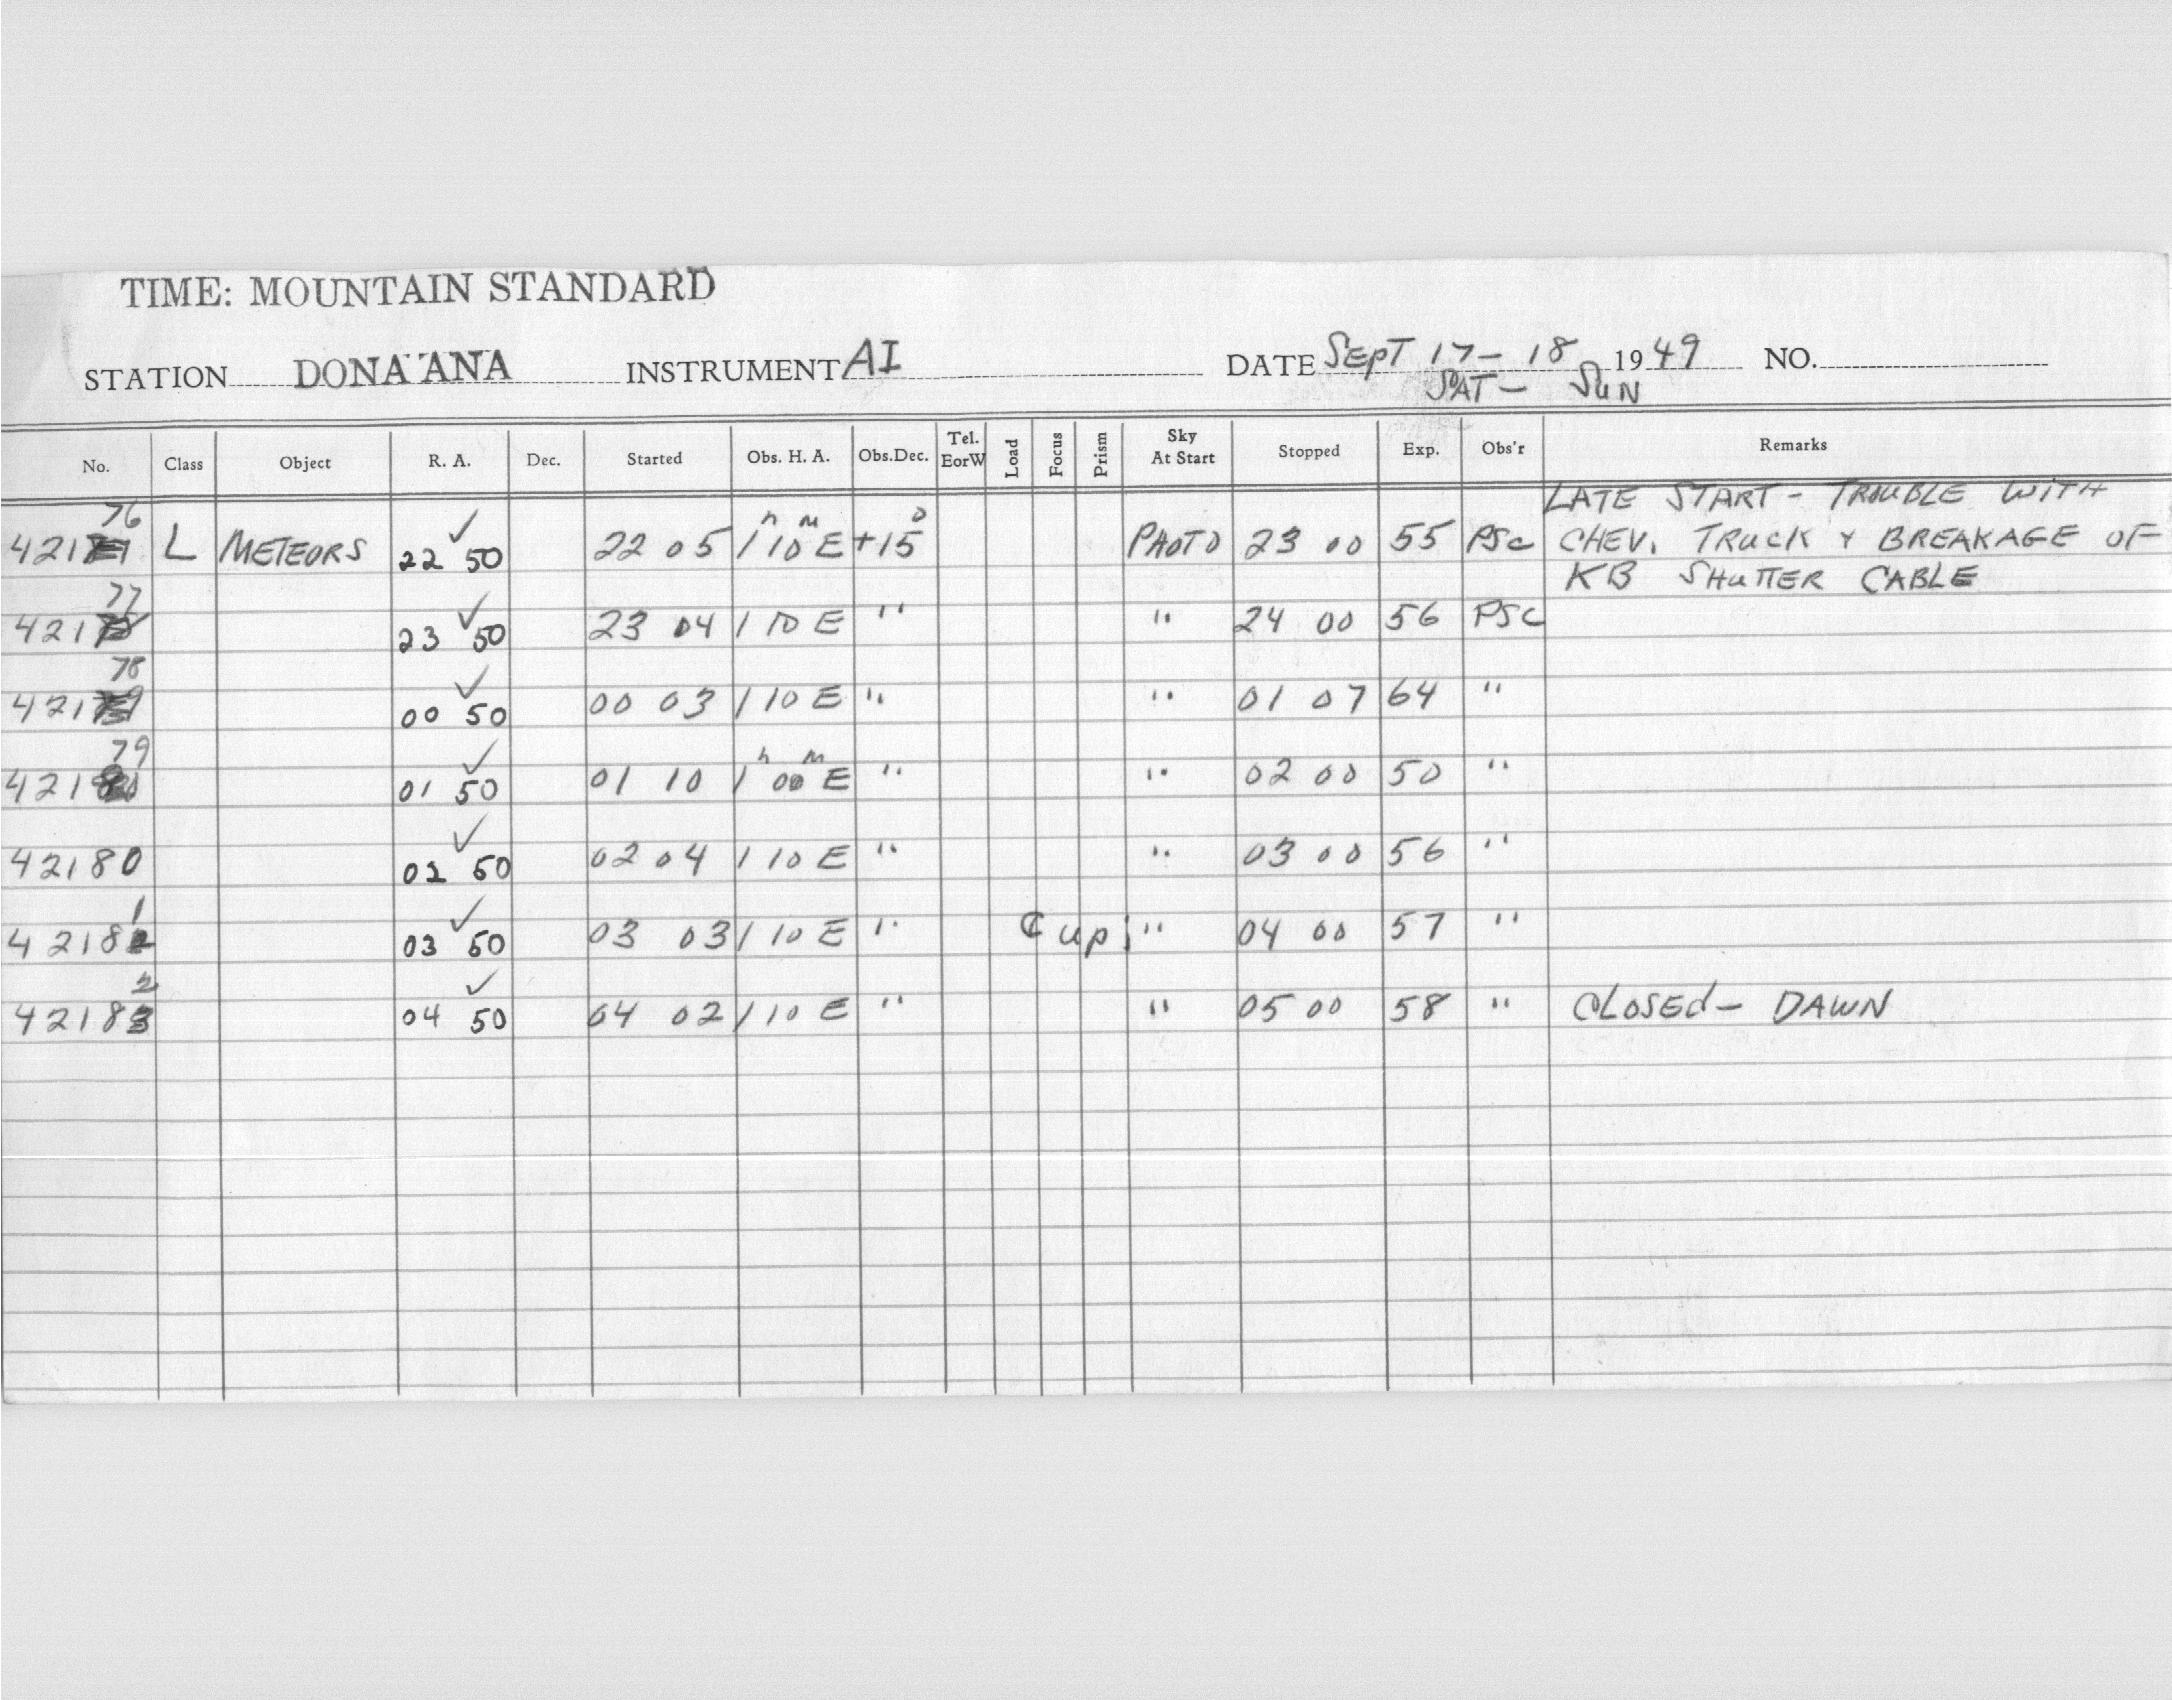 TIME: MOUNTAIN STANDARD
STATION DONA ANA INSTRUMENT AI DATE SEPT 17 - 18 1949 NO.
SAT - SUN
No. Class Object R. A. Dec. Started Obs. H. A. Obs.Dec. Tel. EorW Load Focus Prism Sky At Start Stopped Exp. Obs'r Remarks
LATE START - TROUBLE WITH
76
421 L METEORS 22 50 ✓ 22 05 1h 10m E +15° PHOTO 23 00 55 PSC CHEV. TRUCK & BREAKAGE OF
KB SHUTTER CABLE
77
421 23 50 ✓ 23 04 1 10 E " " 24 00 56 PSC
78
421 00 50 ✓ 00 03 1 10 E " " 01 07 64 "
79
421 01 50 ✓ 01 10 1h 00m E " " 02 00 50 "
42180 02 50 ✓ 02 04 1 10 E " " 03 00 56 "
1
4218 03 50 ✓ 03 03 1 10 E " ☾ up; " 04 00 57 "
2
42183 04 50 ✓ 04 02 1 10 E " " 05 00 58 " CLOSED - DAWN